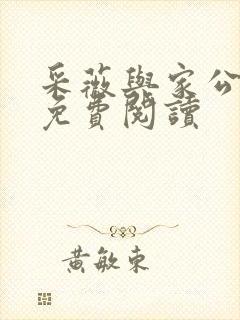 采薇與家公
免費閱讀
黃敏東